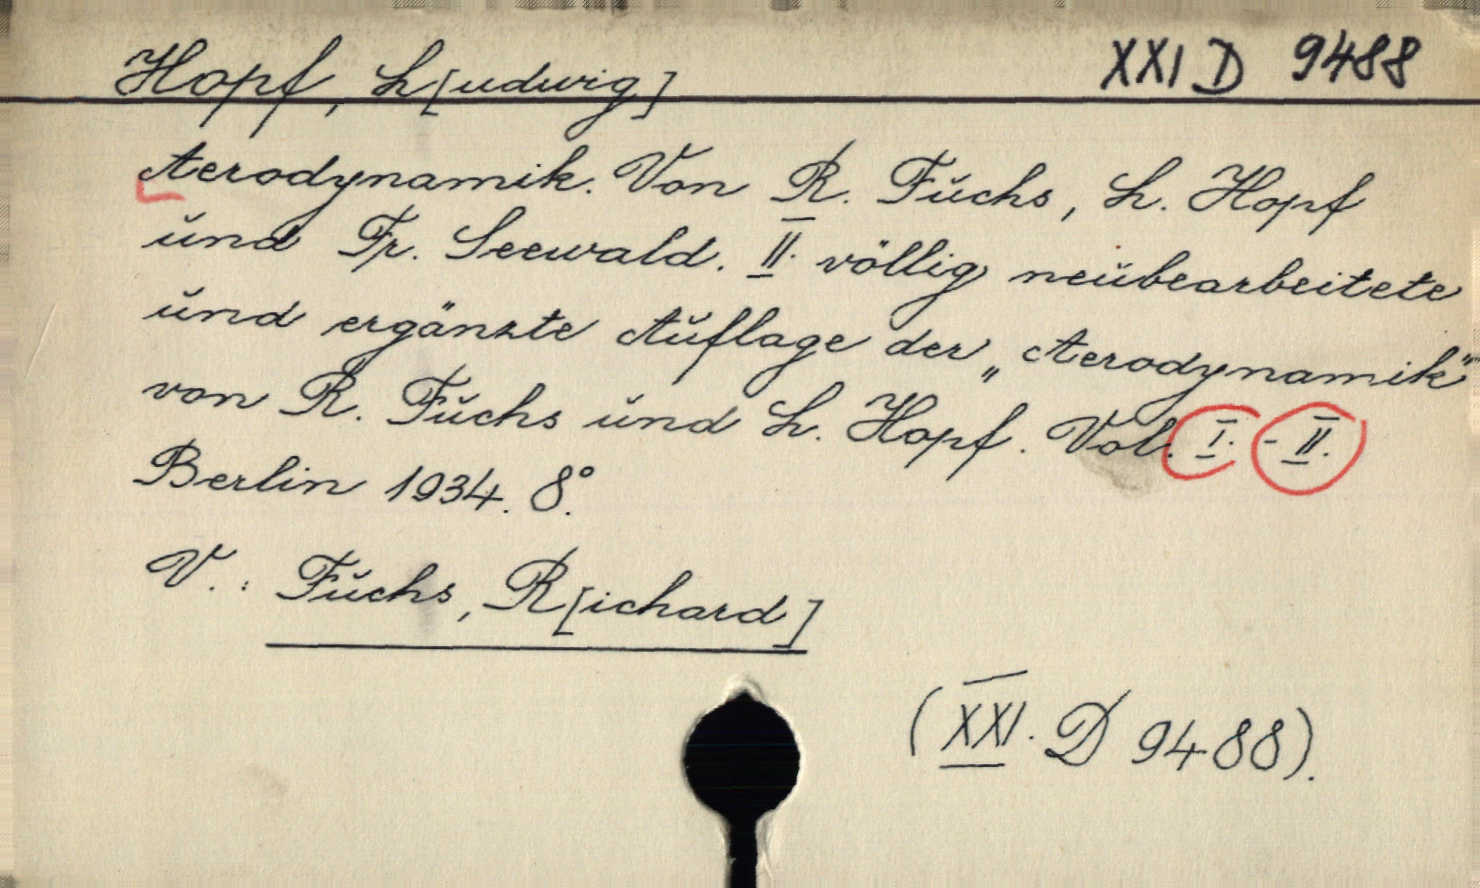 Hopf, L[udwig] XXI D 9488
Aerodynamik. Von R. Fuchs, L. Hopf
und Fr. Seewald. II. völlig neubearbeitete
und ergänzte Auflage der „Aerodynamik"
von R. Fuchs und L. Hopf. Vol. I. - II.
Berlin 1934. 8°.
V.: Fuchs, R[ichard]
(XXI. D 9488).